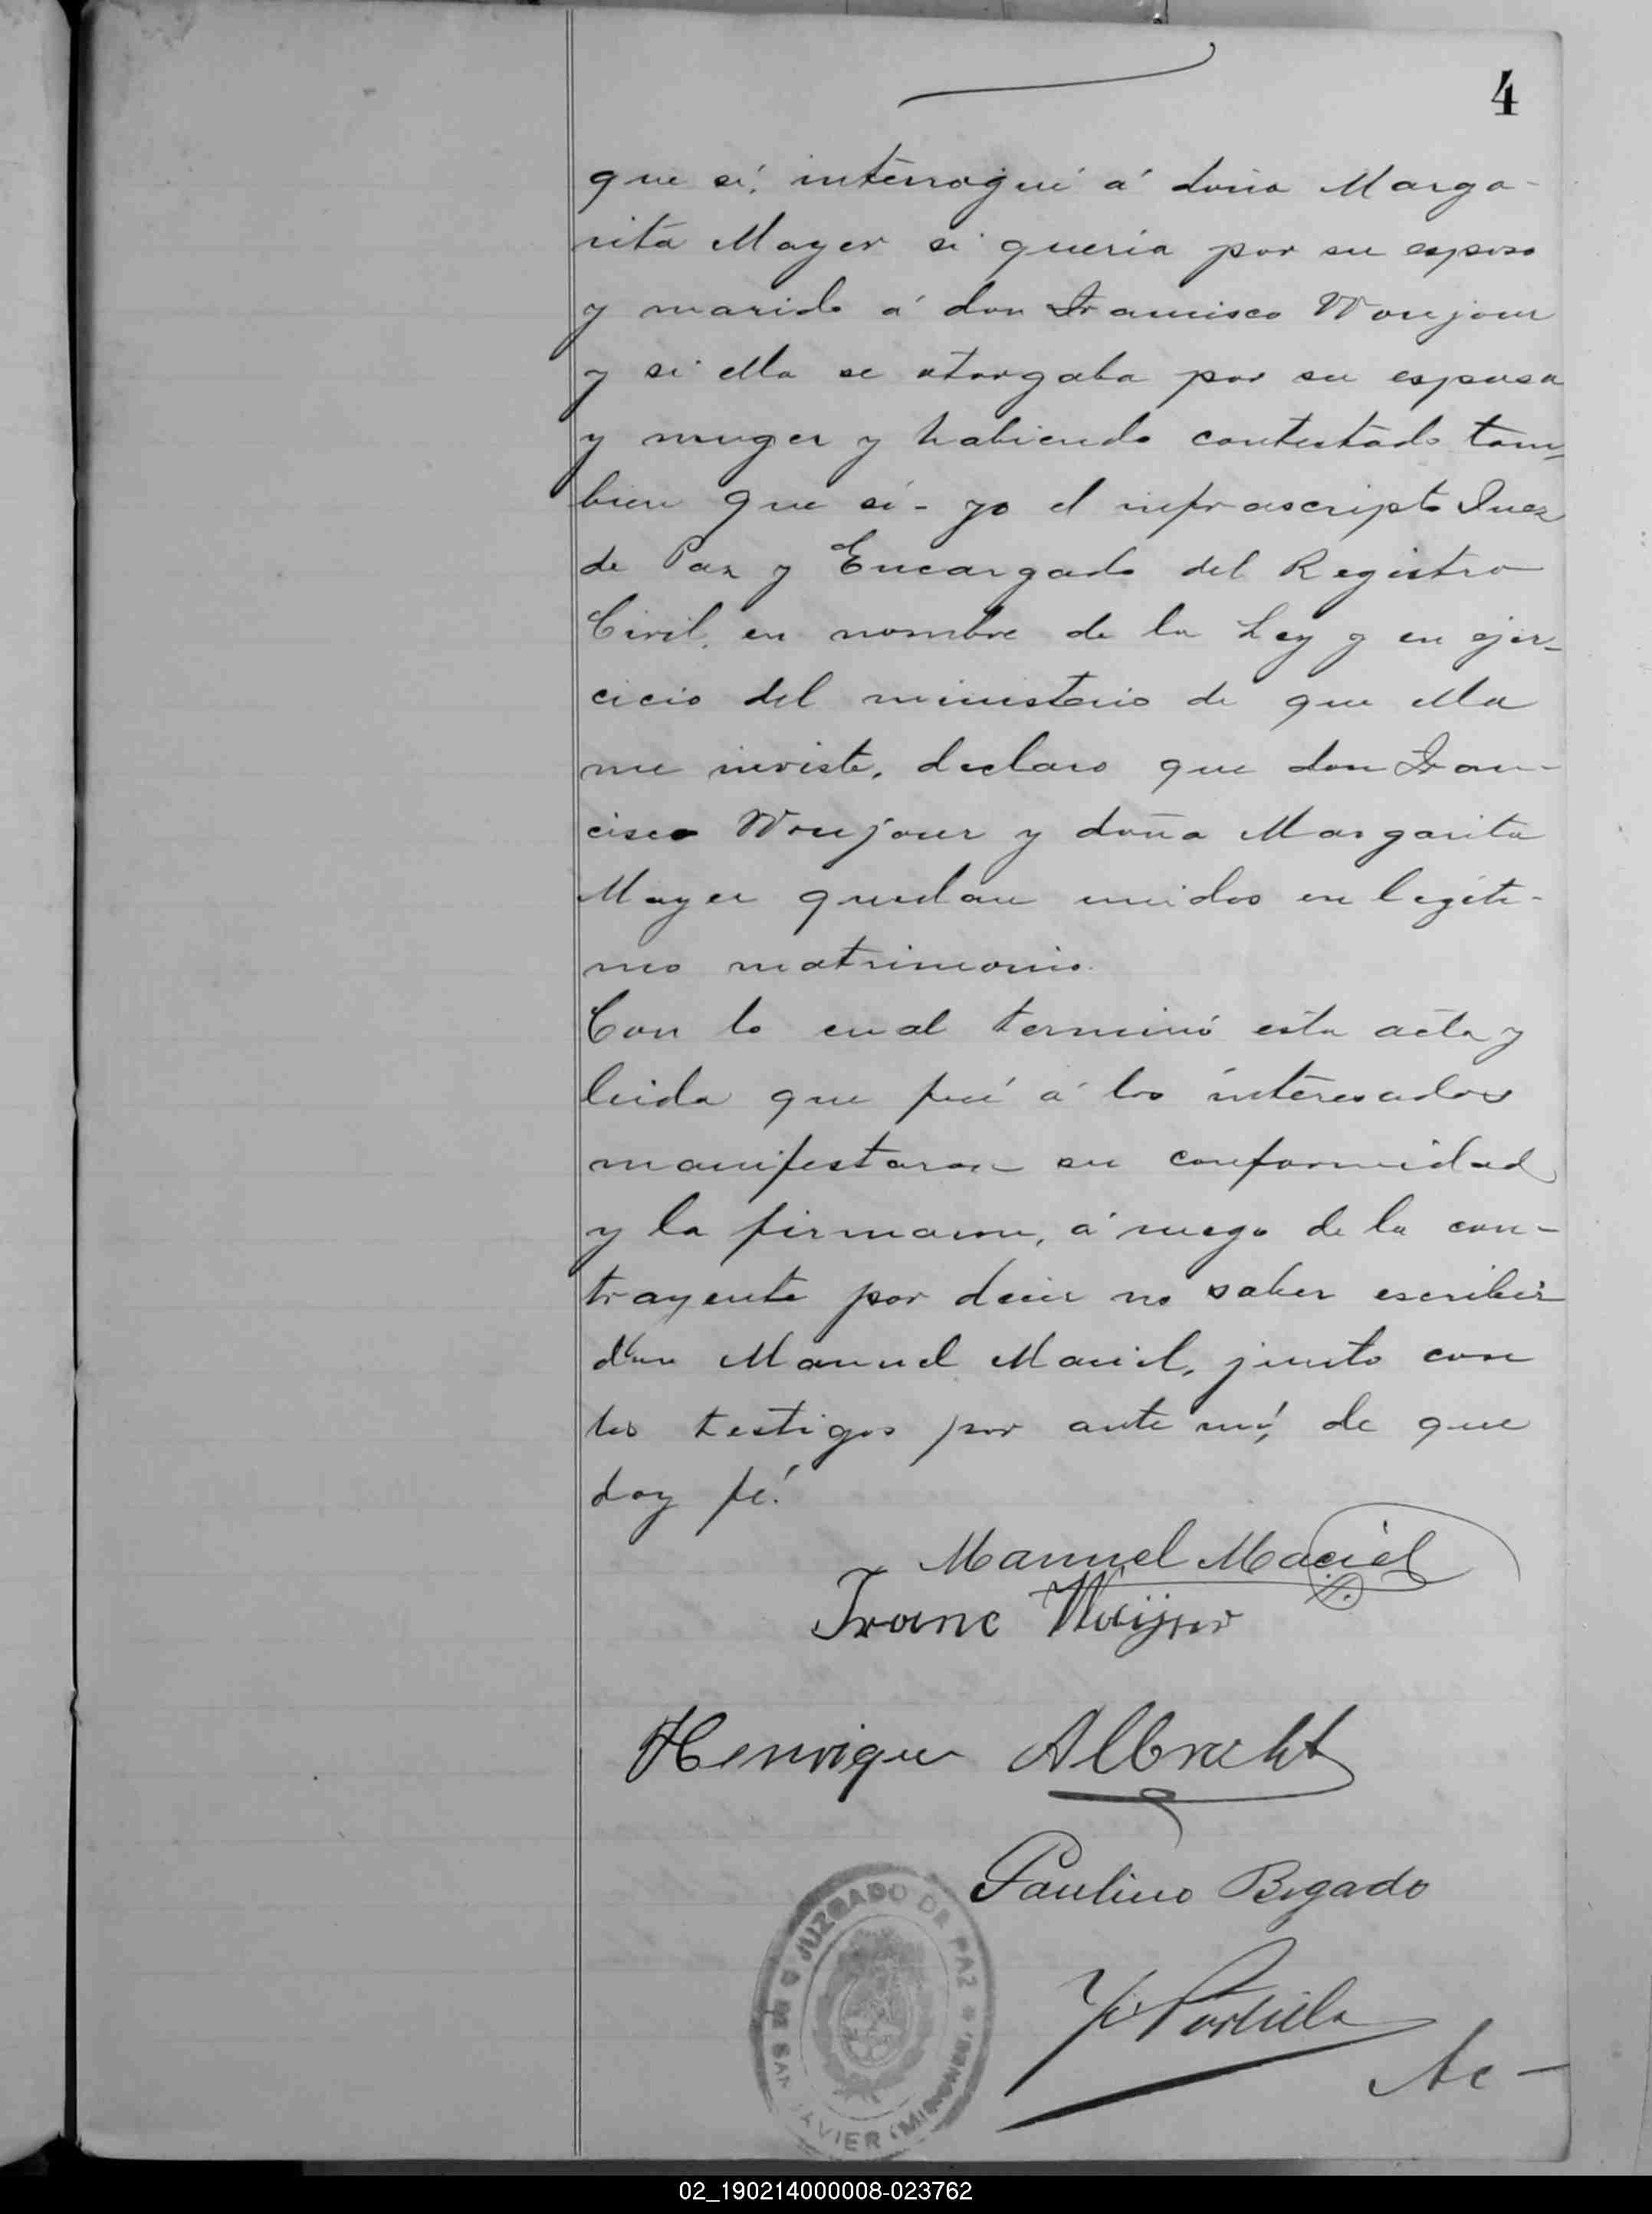 4
que sí, interrogué á doña Marga-
rita Mayer si queria por su esposo
y marido á don Francisco Woujour
y si ella se otorgaba por su esposa
y muger y habiendo contestado tam-
bien que sí - yo el infrascripto Juez
de Paz y Encargado del Registro
Civil, en nombre de la Ley y en ejer-
cicio del ministerio de que ella
me inviste, declaro que don Fran-
cisco Woujour y doña Margarita
Mayer quedan unidos en legíti-
mo matrimonio.
Con lo cual terminó esta acta y
leida que fué á los interesados
manifestaron su conformidad
y la firmaron, á ruego de la con-
trayente por decir no saber escribir
don Manuel Maciel, junto con
los testigos por ante mí, de que
doy fé.
Manuel Maciel
Franc
Henrique Albrecht
Paulino Bogado
Portela
JUZGADO DE PAZ
SAN JAVIER (MISIONES)
Ac-
02_190214000008-023762